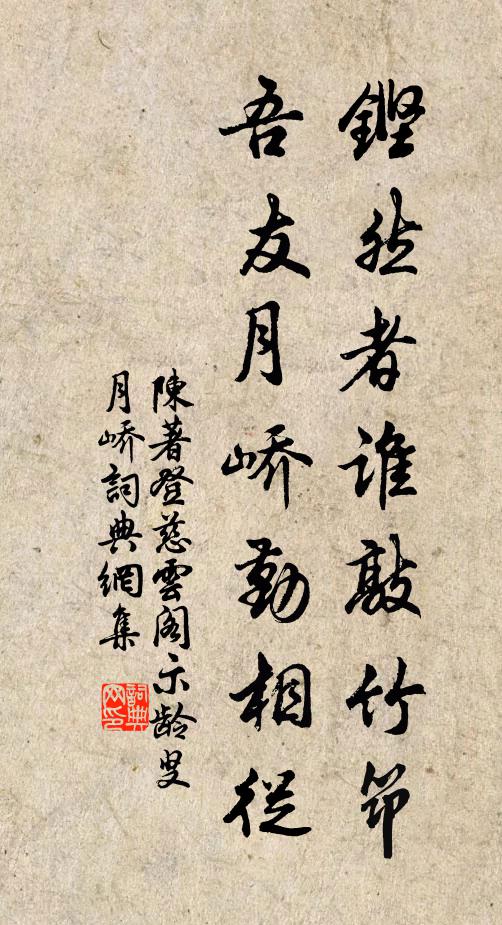 鏗然者誰敲竹筇
吾友月峤勤相從
陳著登慈雲閣示龄叟
月峤詞典網集
詞典网印